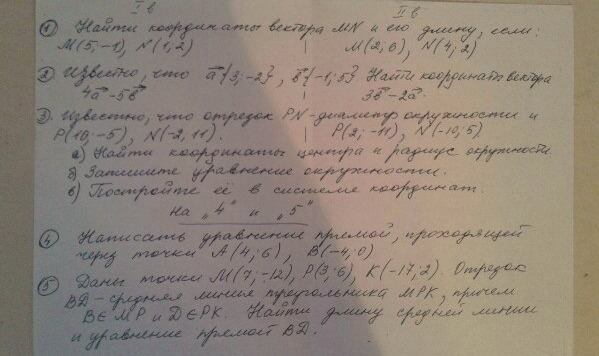 I в II в
① Найти координаты вектора MN и его длину, если:
M(5;-1), N(1;2) M(2;0), N(4;2)
② Известно, что a⃗{3;-2}, b⃗{-1;5} Найти координаты вектора
4a⃗-5b⃗ 3b⃗-2a⃗.
③ Известно, что отрезок PN-диаметр окружности и
P(10;-5), N(-2,11). P(2;-11), N(-10;5)
а) Найти координаты центра и радиус окружности.
б) Запишите уравнение окружности.
в) Постройте её в системе координат.
На „4" и „5"
④ Написать уравнение прямой, проходящей
через точки A(4;6), B(-4;0)
⑤ Даны точки M(7;-12), P(3;6), K(-17;2). Отрезок
BD-средняя линия треугольника MPK, причем
B∈MP и D∈PK. Найти длину средней линии
и уравнение прямой BD.